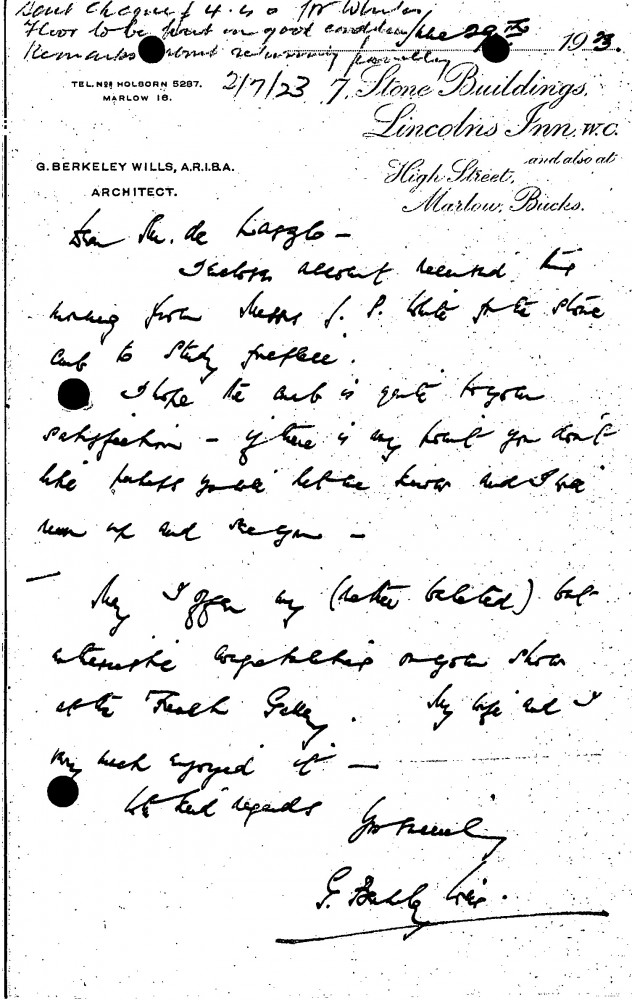 Sent cheque £ 4. is a for
Floor to be put in good condition June 29th 1923.
Remarks about returning
TEL. Nos HOLBORN 5287.
MARLOW 18.
2/7/23 7, Stone Buildings,
Lincolns Inn, W.C.
and also at
High Street,
Marlow, Bucks.
G. BERKELEY WILLS, A.R.I.B.A.
ARCHITECT.
Dear Mr. de Laszlo -
I enclose account received this
morning from Messrs J. P. White for the stone
curb to Study fireplace.
I hope the curb is quite to your
satisfaction - if there is any point you don't
like perhaps you will let me know and I will
run up and see you -
- May I offer my (rather belated) but
enthusiastic congratulations on your show
at the French Gallery. My wife and I
very much enjoyed it -
With kind regards
Yrs sincerely
G. Berkeley Wills.